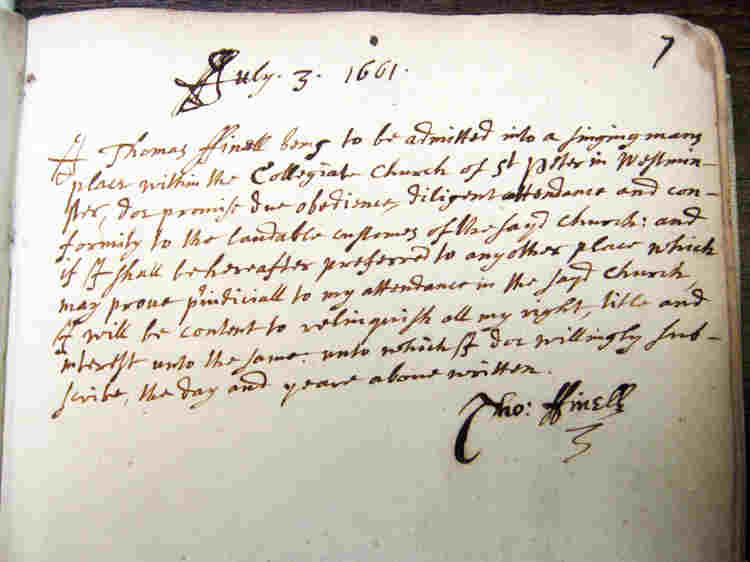 7
July. 3. 1661.
I Thomas ffinell being to be admitted into a singingmans
place within the Collegiate Church of St Peter in Westmin-
ster, doe promise due obedience, diligent attendance and con-
formity to the laudable customes of the sayd Church: and
if I shall be hereafter preferred to any other place which
may prove p'iudiciall to my attendance in the sayd Church,
I will be content to relinquish all my right, title and
interest unto the same. unto which I doe willingly sub-
scribe, the day and yeare above written.
Tho: ffinell